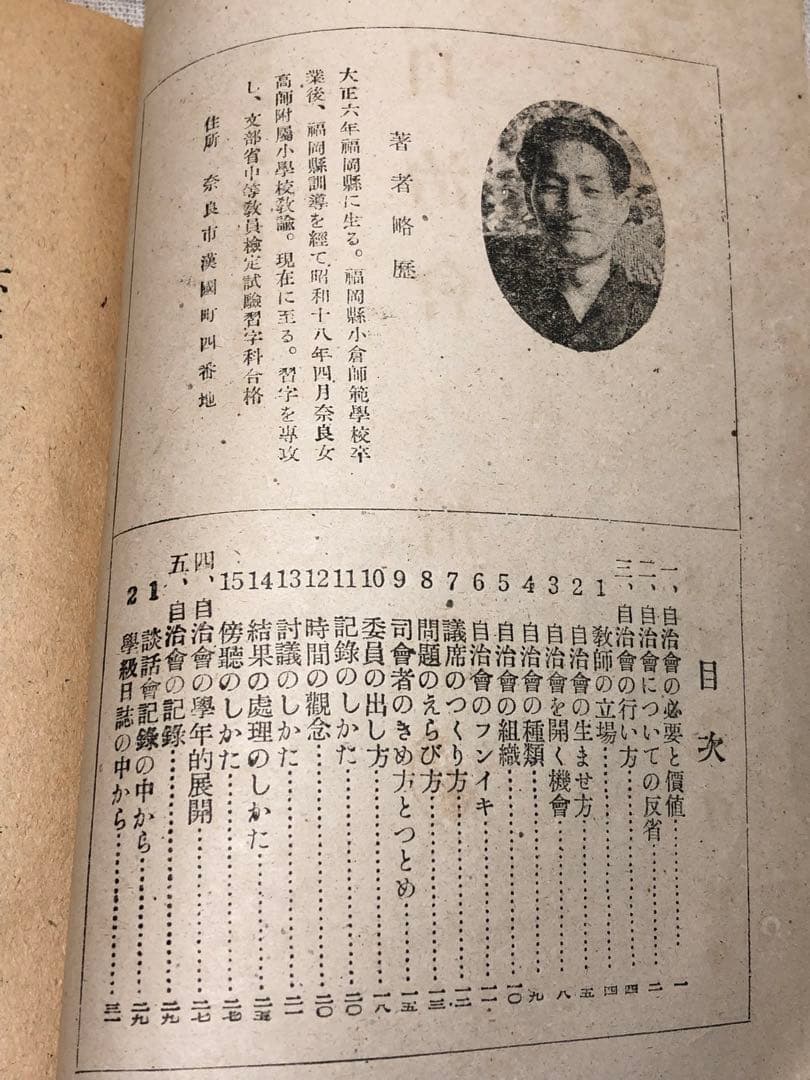 著者略歷
大正六年福岡縣に生る。福岡縣小倉師範學校卒
業後、福岡縣訓導を經て昭和十八年四月奈良女
高師附屬小學校敎諭。現在に至る。習字を專攻
し、文部省中等敎員檢定試驗習字科合格
住所 奈良市漢國町四番地
目次
一、自治會の必要と價値……一
二、自治會についての反省……二
三、自治會の行い方……四
1 敎師の立場……四
2 自治會の生ませ方……五
3 自治會を開く機會……八
4 自治會の種類……九
5 自治會の組織……一〇
6 自治會のフンイキ……一一
7 議席のつくり方……一二
8 問題のえらび方……一三
9 司會者のきめ方とつとめ……一五
10 委員の出し方……一八
11 記錄のしかた……二〇
12 時間の觀念……二〇
13 討議のしかた……二一
14 結果の處理のしかた……二五
15 傍聽のしかた……二七
四、自治會の學年的展開……二七
五、自治會の記錄……二九
1 談話會記錄の中から……二九
2 學級日誌の中から……三一